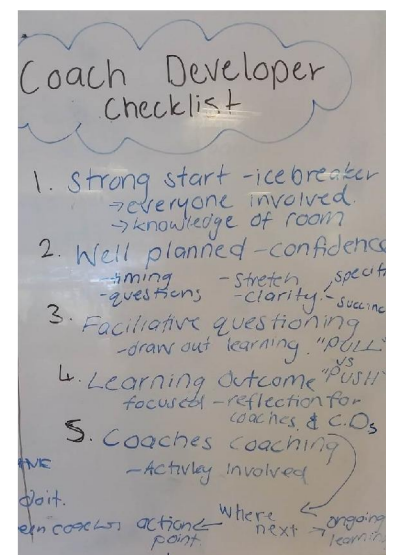 Coach Developer
Checklist
1. Strong start - icebreaker
→ everyone involved.
→ knowledge of room
2. Well planned - confidence
- timing - Stretch specifi
- questions - clarity. - succinc
3. Faciliative questioning
- draw out learning. "PULL"
vs
4. Learning Outcome "PUSH"
focused - reflection for
coaches & C.Ds
5. Coaches coaching
- Activley involved
doit.
Where ongoing
een coaches action ← next → learnin
point.